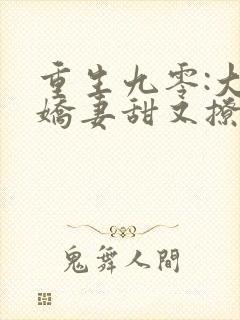 重生九零:大
嬌妻甜又撩
鬼舞人間